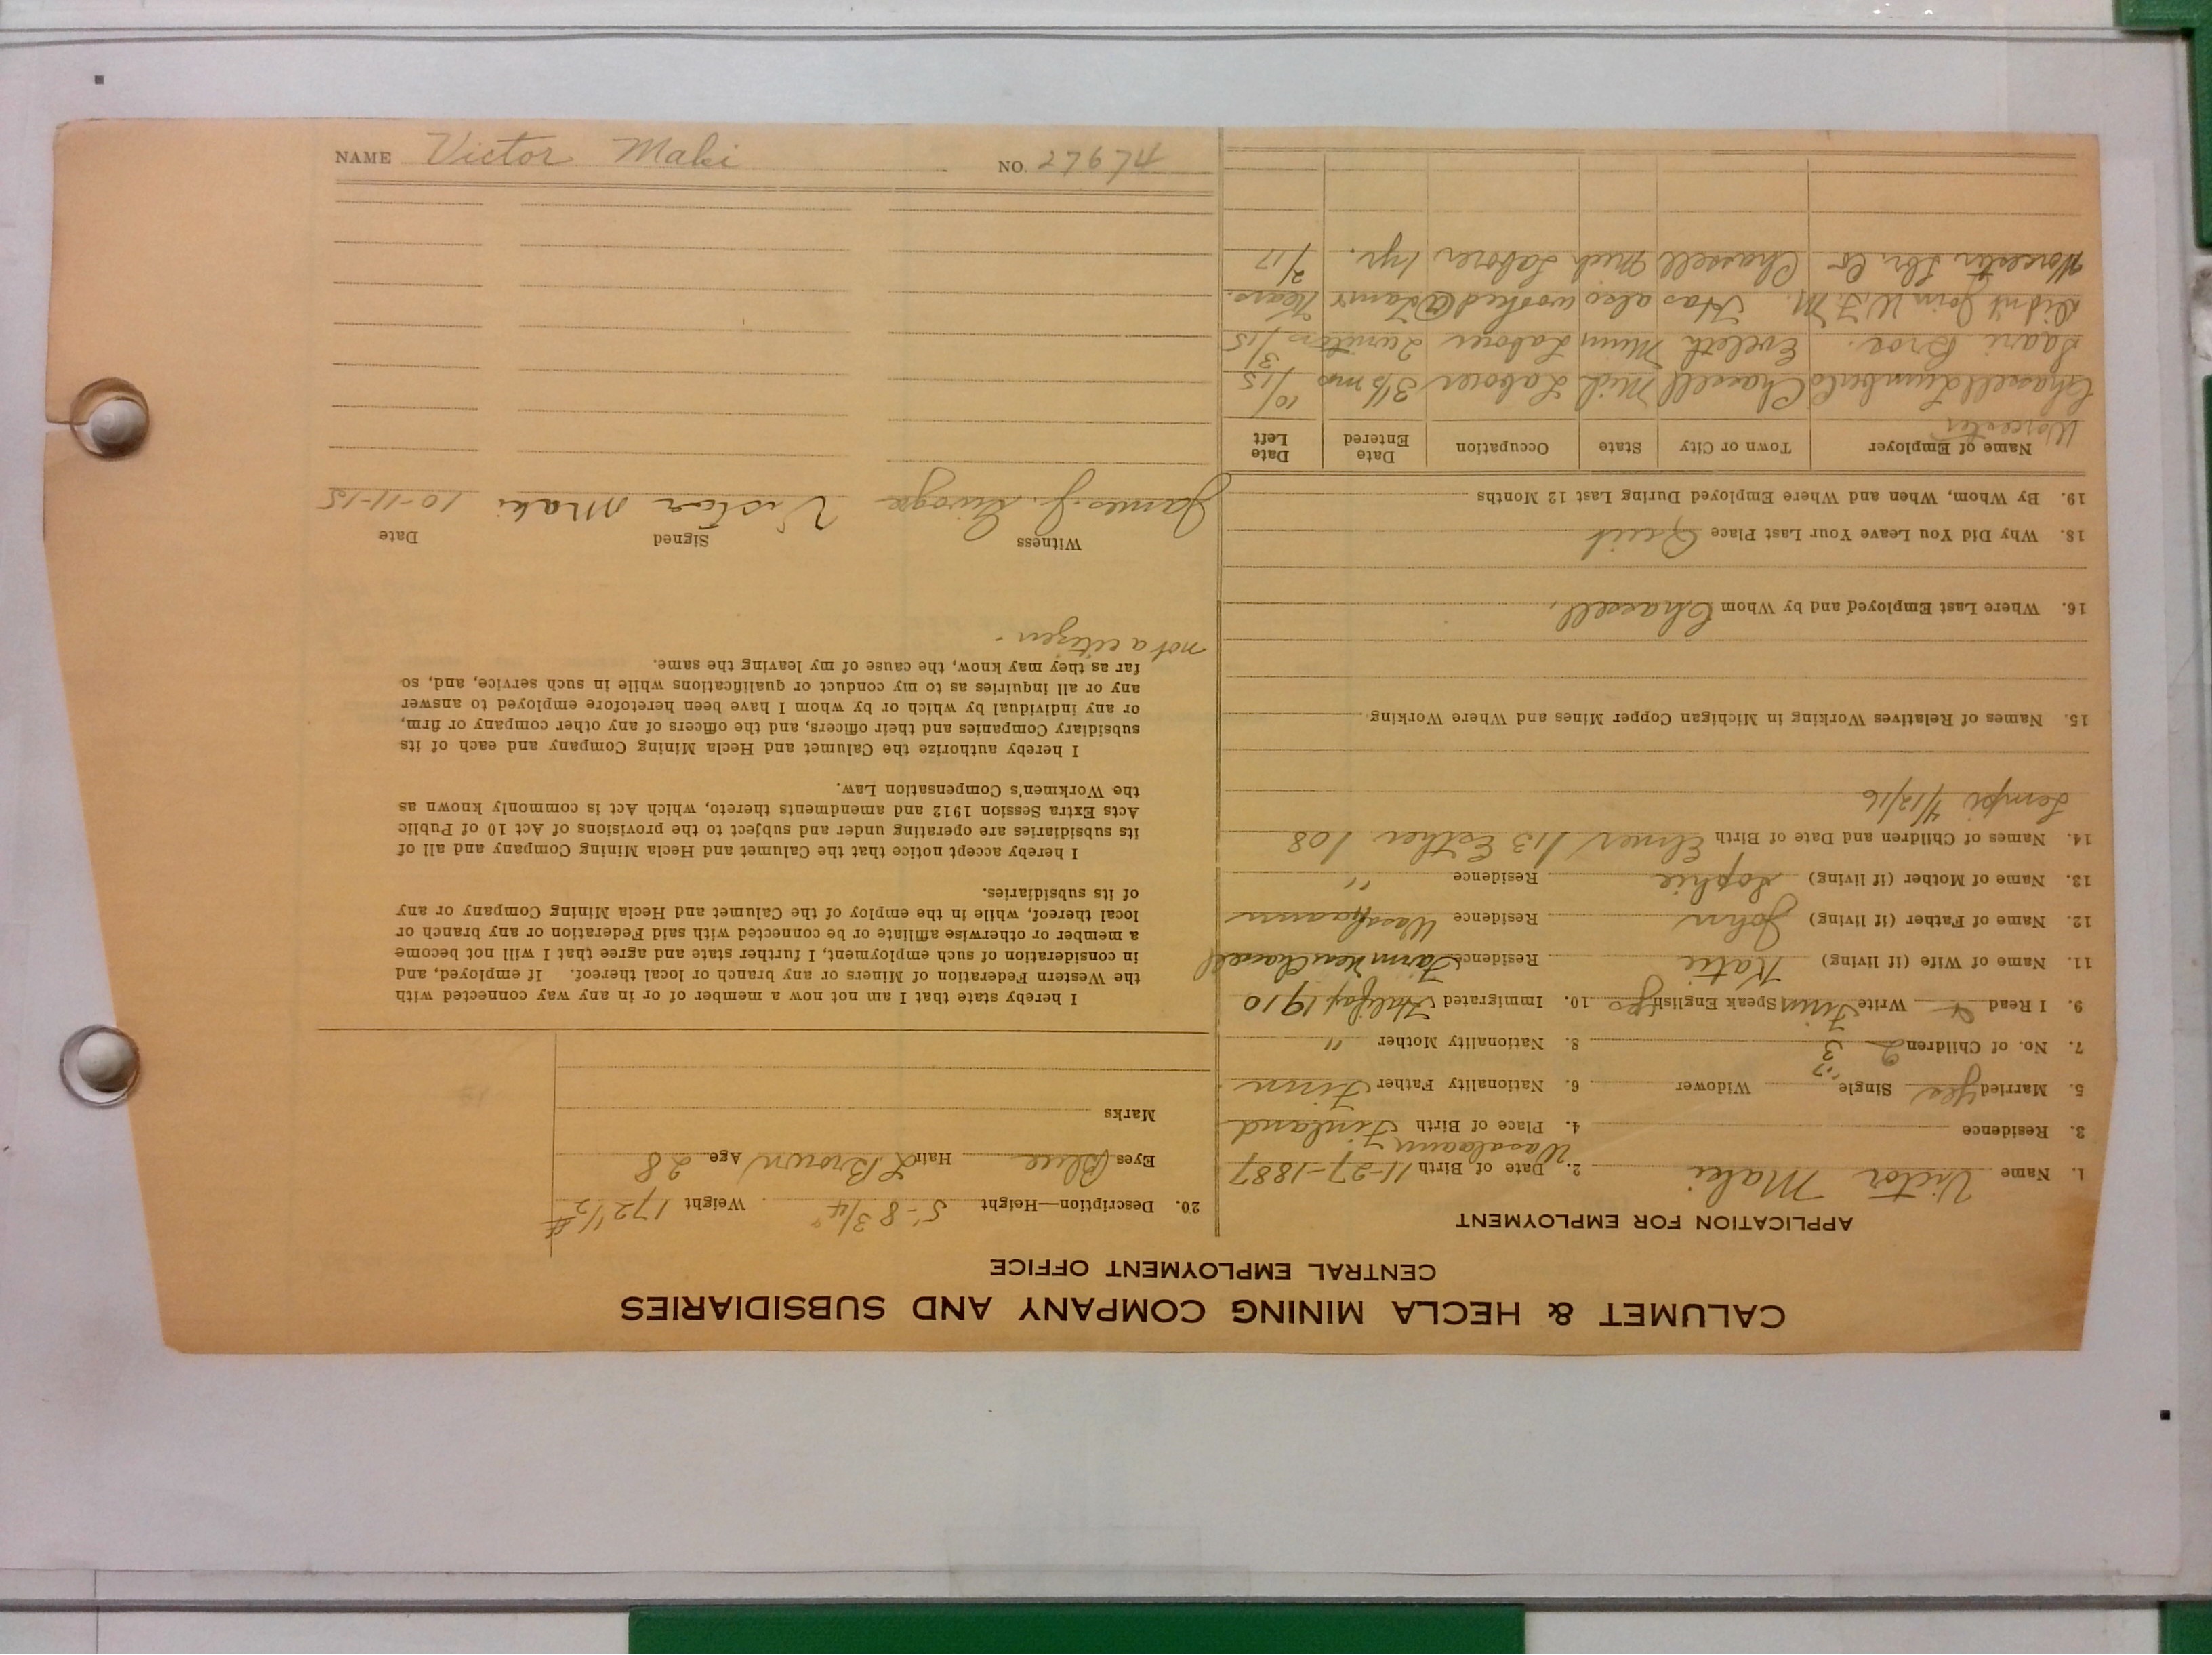 CALUMET & HECLA MINING COMPANY AND SUBSIDIARIES
CENTRAL EMPLOYMENT OFFICE
APPLICATION FOR EMPLOYMENT
1. Name Victor Maki 2. Date of Birth 11-27-1887
3. Residence 4. Place of Birth Wasalaani Finland
5. Married yes Single Widower 6. Nationality Father Finn
7. No. of Children 2 3 8. Nationality Mother "
9. I Read & Write Finn Speak English yes 10. Immigrated Halifax 1910
11. Name of Wife (if living) Katie Residence Farm near Chassell
12. Name of Father (if living) John Residence
13. Name of Mother (if living) Sophie Residence "
14. Names of Children and Date of Birth Elmer /13 Esther /08
Lempi 4/12/16
15. Names of Relatives Working in Michigan Copper Mines and Where Working
16. Where Last Employed and by Whom Chassell.
18. Why Did You Leave Your Last Place Quit
19. By Whom, When and Where Employed During Last 12 Months
Name of Employer Town or City State Occupation Date Entered Date Left
Worcester
Chassell Lumber Co Chassell Mich Laborer 3½ mos 10/15
Saari Bros. Eveleth Minn Laborer 2 winters 3/15
Didn't join W.F.M. Has also worked @ Kears.
Worcester Lbr Co Chassell Mich Laborer 1 yr. 2/17
20. Description—Height 5'-8 3/4" Weight 172 1/2 #
Eyes Blue Hair L Brown Age 28
Marks
I hereby state that I am not now a member of or in any way connected with
the Western Federation of Miners or any branch or local thereof. If employed, and
in consideration of such employment, I further state and agree that I will not become
a member or otherwise affiliate or be connected with said Federation or any branch or
local thereof, while in the employ of the Calumet and Hecla Mining Company or any
of its subsidiaries.
I hereby accept notice that the Calumet and Hecla Mining Company and all of
its subsidiaries are operating under and subject to the provisions of Act 10 of Public
Acts Extra Session 1912 and amendments thereto, which Act is commonly known as
the Workmen's Compensation Law.
I hereby authorize the Calumet and Hecla Mining Company and each of its
subsidiary Companies and their officers, and the officers of any other company or firm,
or any individual by which or by whom I have been heretofore employed to answer
any or all inquiries as to my conduct or qualifications while in such service, and, so
far as they may know, the cause of my leaving the same.
not a citizen.
Witness Signed Date
James. J. Victor Maki 10-11-15
NAME Victor Maki NO. 27674